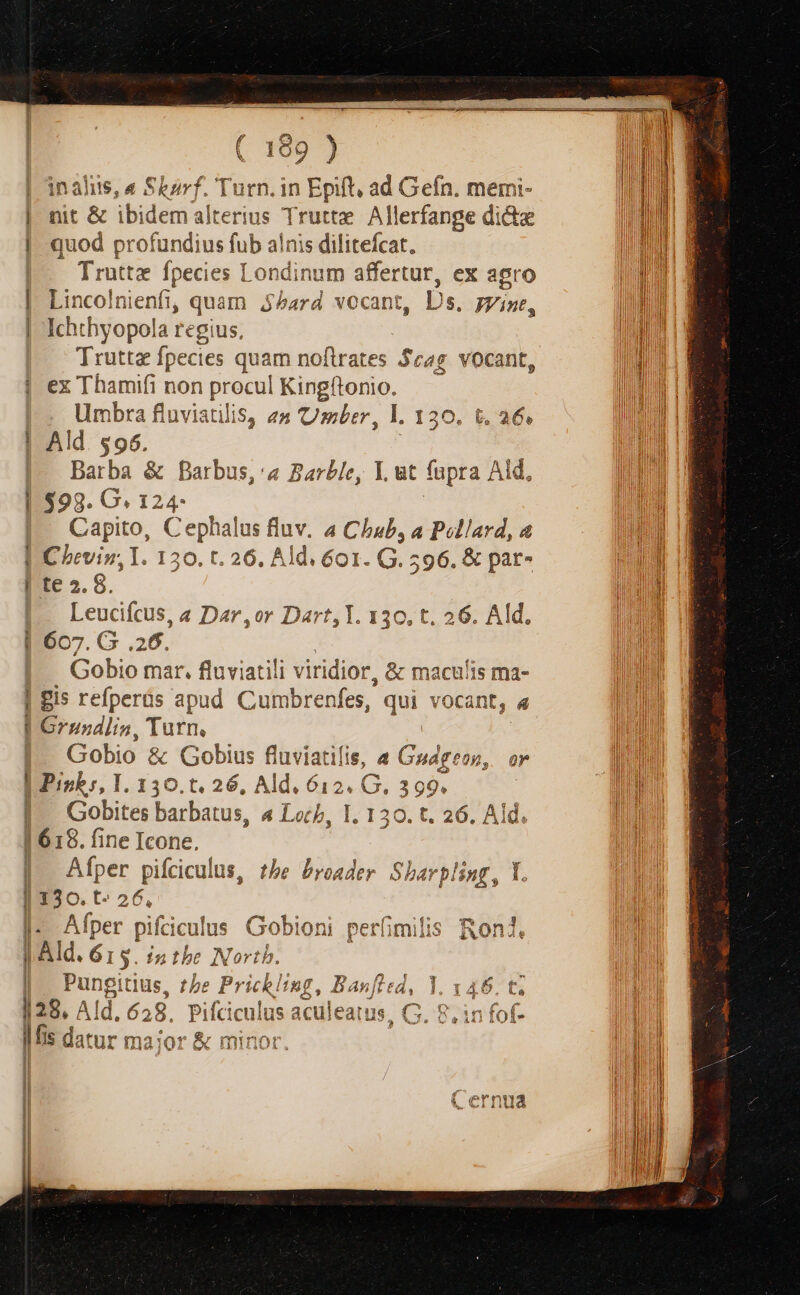 ( 189 )
in aliis, a Skurf. Turn. in Epiſt, ad Geſn. memi-
nit & ibidem alterius Truttæ Allerfange dictæ
quod profundius ſub alnis diliteſcat.
Truttæ ſpecies Londinum affertur, ex agro
Lincolnienſi, quam Shard vocant, Ds. Wine,
Ichthyopola regius,
Truttæ ſpecies quam noſtrates Scag vocant,
ex Thamiſi non procul Kingſtonio.
Umbra fluviatilis, an Umber, I. 130. t. 26.
Ald 596.
Barba & Barbus, a Barble, I. ut ſupra Ald.
598. G. 124.
Capito, Cephalus fluv. a Chub, a Pollard, a
Chevin, I. 130. t. 26, Ald. 601. G. 596. & par-
te 2. 8.
Leuciſcus, a Dar, or Dart, I. 130, t. 26. Ald.
607. G .26.
Gobio mar. fluviatili viridior, & maculis ma-
gis reſperûs apud Cumbrenſes, qui vocant, a
Grundlin, Turn.
Gobio & Gobius fluviatilis, a Gudgeon, or
Pinks, I. 130. t. 26, Ald. 612. G. 399.
Gobites barbatus, a Loch, I. 130. t. 26. Ald.
618. ſine Icone.
Aſper piſciculus, the broader Sharpling, I.
130. t. 26,
Aſper piſciculus Gobioni perſimilis Rond.
Ald. 615. in the North.
Pungitius, the Prickling, Banſted, I. 146. t.
28. Ald. 628. Piſciculus aculeatus, G. 8. in foſ-
ſis datur major & minor.
Cernua